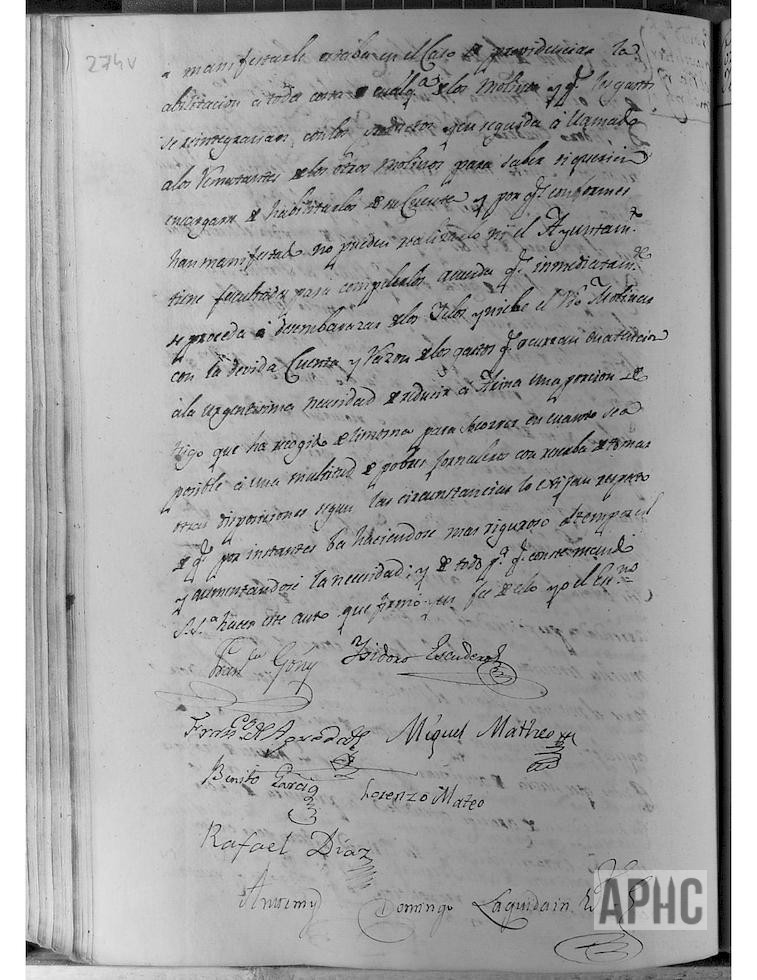 274v
a manifestarle estaba en el Caso de providenciar la
abilitacion a toda costa de cualqa. de los Molinos y qe. los gastos
se reintegrarian con los productos y en seguida á llamado
a los Rematantes de los otros Molinos para saber si querian
encargarse de habilitarlos de su Cuenta y por qe. conformes
han manifestado no pueden realizarlo ni el Ayuntamto.
tiene facultades para compelerlos acuerda qe. inmediatamte.
se proceda á desembarazar de los Yelos y nieve el Molino
con la devida Cuenta y Razon de los gastos qe. ocurran en atencion
á la urgentisima necesidad de reducir á Arina una porcion de
trigo que ha recogido de limosna para socorrer en cuanto sea
posible á una multitud de pobres jornaleros con reserba de tomar
otras disposiciones segun las circunstancias lo exijan respeto
de qe. por instantes ba haciendose mas riguroso el temporal
y aumentandose la necesidad; y de todo pa. qe. conste mandó
S.S.a hacer este auto que firmó y en fee de ello yo el Essno.
Franco. Goñy Isidoro Escudero
Franco. de Agreda Miguel Matheo
Benito Garcia Lorenzo Mateo
Rafael Diaz
Antemy Domingo Laquidain
APHC